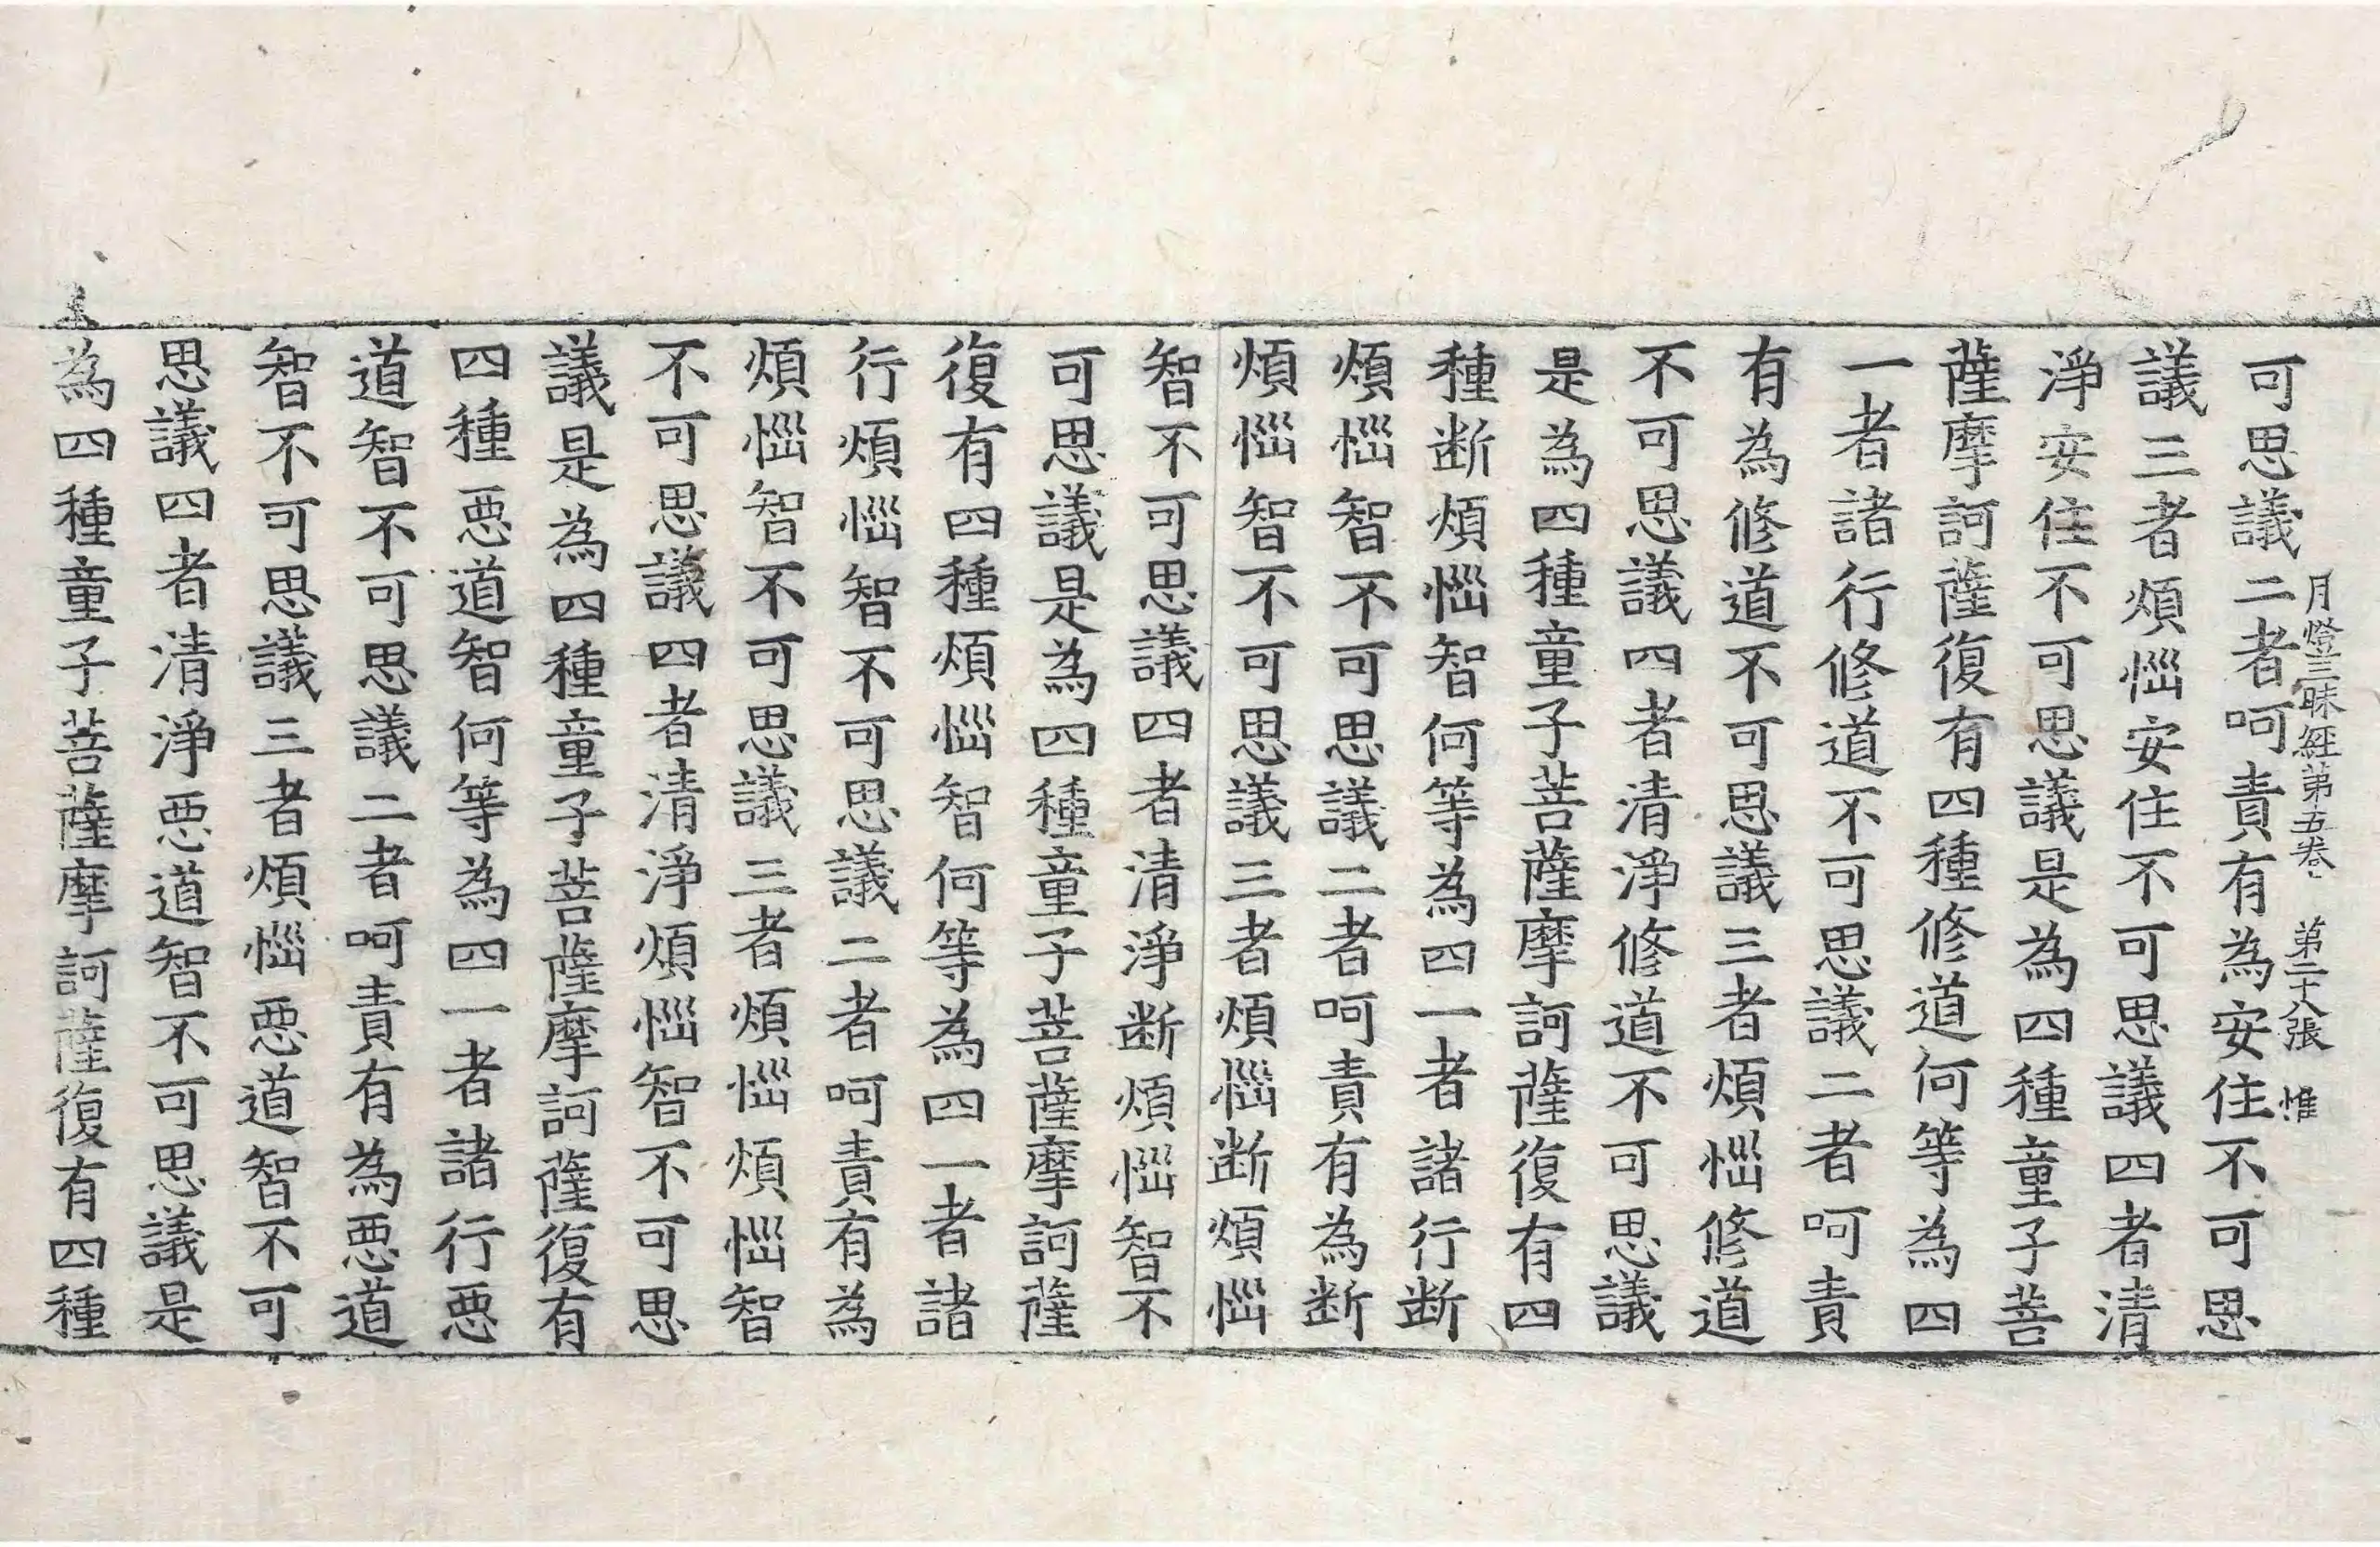 月燈三昧經第五卷 第二十八張 惟
可思議二者呵責有為安住不可思
議三者煩惱安住不可思議四者清
淨安住不可思議是為四種童子菩
薩摩訶薩復有四種修道何等為四
一者諸行修道不可思議二者呵責
有為修道不可思議三者煩惱修道
不可思議四者清淨修道不可思議
是為四種童子菩薩摩訶薩復有四
種断煩惱智何等為四一者諸行断
煩惱智不可思議二者呵責有為断
煩惱智不可思議三者煩惱断煩惱
智不可思議四者清淨断煩惱智不
可思議是為四種童子菩薩摩訶薩
復有四種煩惱智何等為四一者諸
行煩惱智不可思議二者呵責有為
煩惱智不可思議三者煩惱煩惱智
不可思議四者清淨煩惱智不可思
議是為四種童子菩薩摩訶薩復有
四種惡道智何等為四一者諸行惡
道智不可思議二者呵責有為惡道
智不可思議三者煩惱惡道智不可
思議四者清淨惡道智不可思議是
為四種童子菩薩摩訶薩復有四種